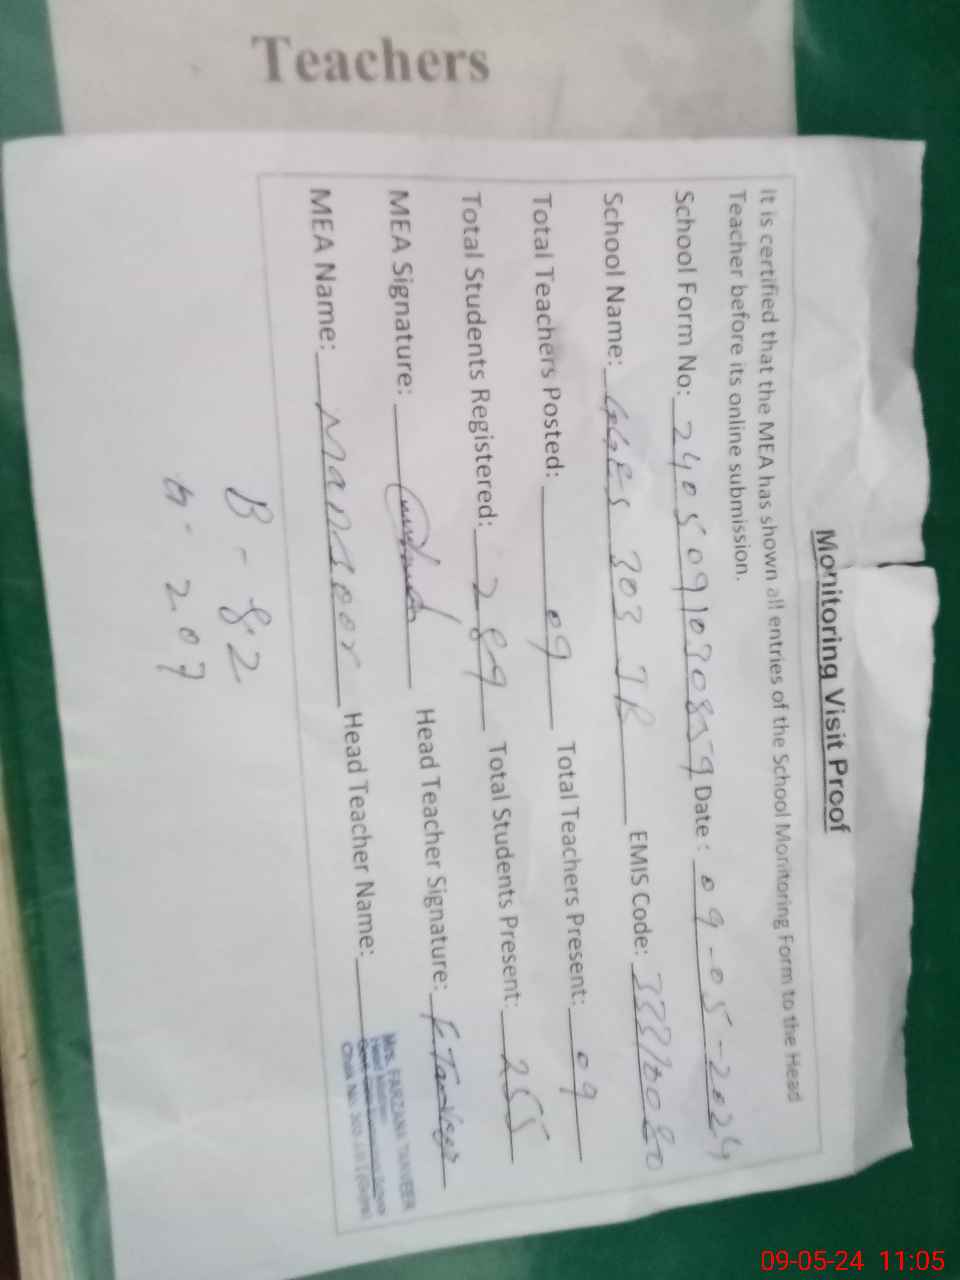 Teachers
Monitoring Visit Proof
It is certified that the MEA has shown all entries of the School Monitoring Form to the Head
Teacher before its online submission.
School Form No: 240509103089 Date: 09-05-2024
School Name: GGES 303 JB EMIS Code: 33310080
Total Teachers Posted: 09 Total Teachers Present: 09
Total Students Registered: 289 Total Students Present: 255
MEA Signature: Head Teacher Signature: F. Tanveer
MEA Name: Mansoor Head Teacher Name:
Mrs. FARZANA TANVEER
Head
Chak No. 303 J.B (Gojra)
B - 82
G - 207
09-05-24 11:05